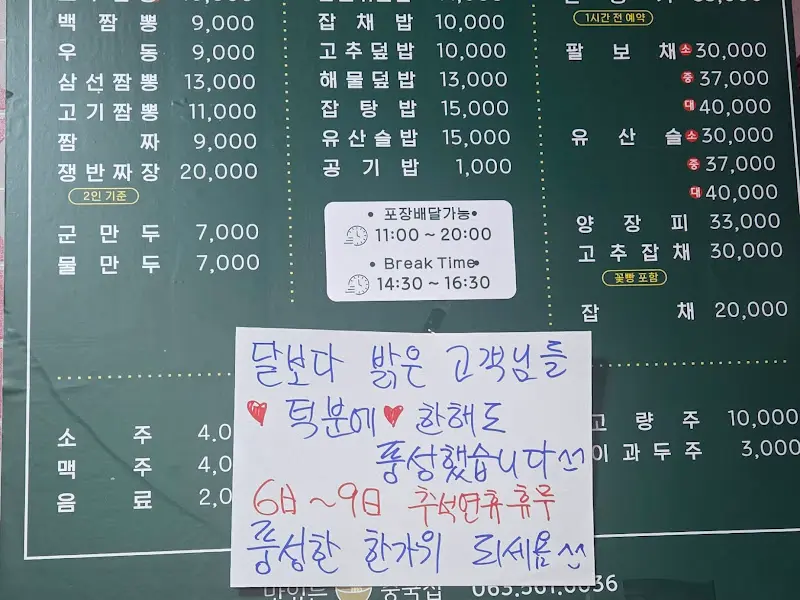 백짬뽕 9,000
우동 9,000
삼선짬뽕 13,000
고기짬뽕 11,000
짬짜 9,000
쟁반짜장 20,000
2인 기준
군만두 7,000
물만두 7,000
소주
맥주
음료
잡채밥 10,000
고추덮밥 10,000
해물덮밥 13,000
잡탕밥 15,000
유산슬밥 15,000
공기밥 1,000
• 포장배달가능 •
11:00 ~ 20:00
• Break Time •
14:30 ~ 16:30
1시간 전 예약
팔보채 소 30,000
중 37,000
대 40,000
유산슬 소 30,000
중 37,000
대 40,000
양장피 33,000
고추잡채 30,000
꽃빵 포함
잡채 20,000
고량주 10,000
이과두주 3,000
달보다 밝은 고객님들
♥ 덕분에 ♥ 한해도
풍성했습니다^^
6日~9日 추석연휴 휴무
풍성한 한가위 되세욤^^
중국집 063.501.0036